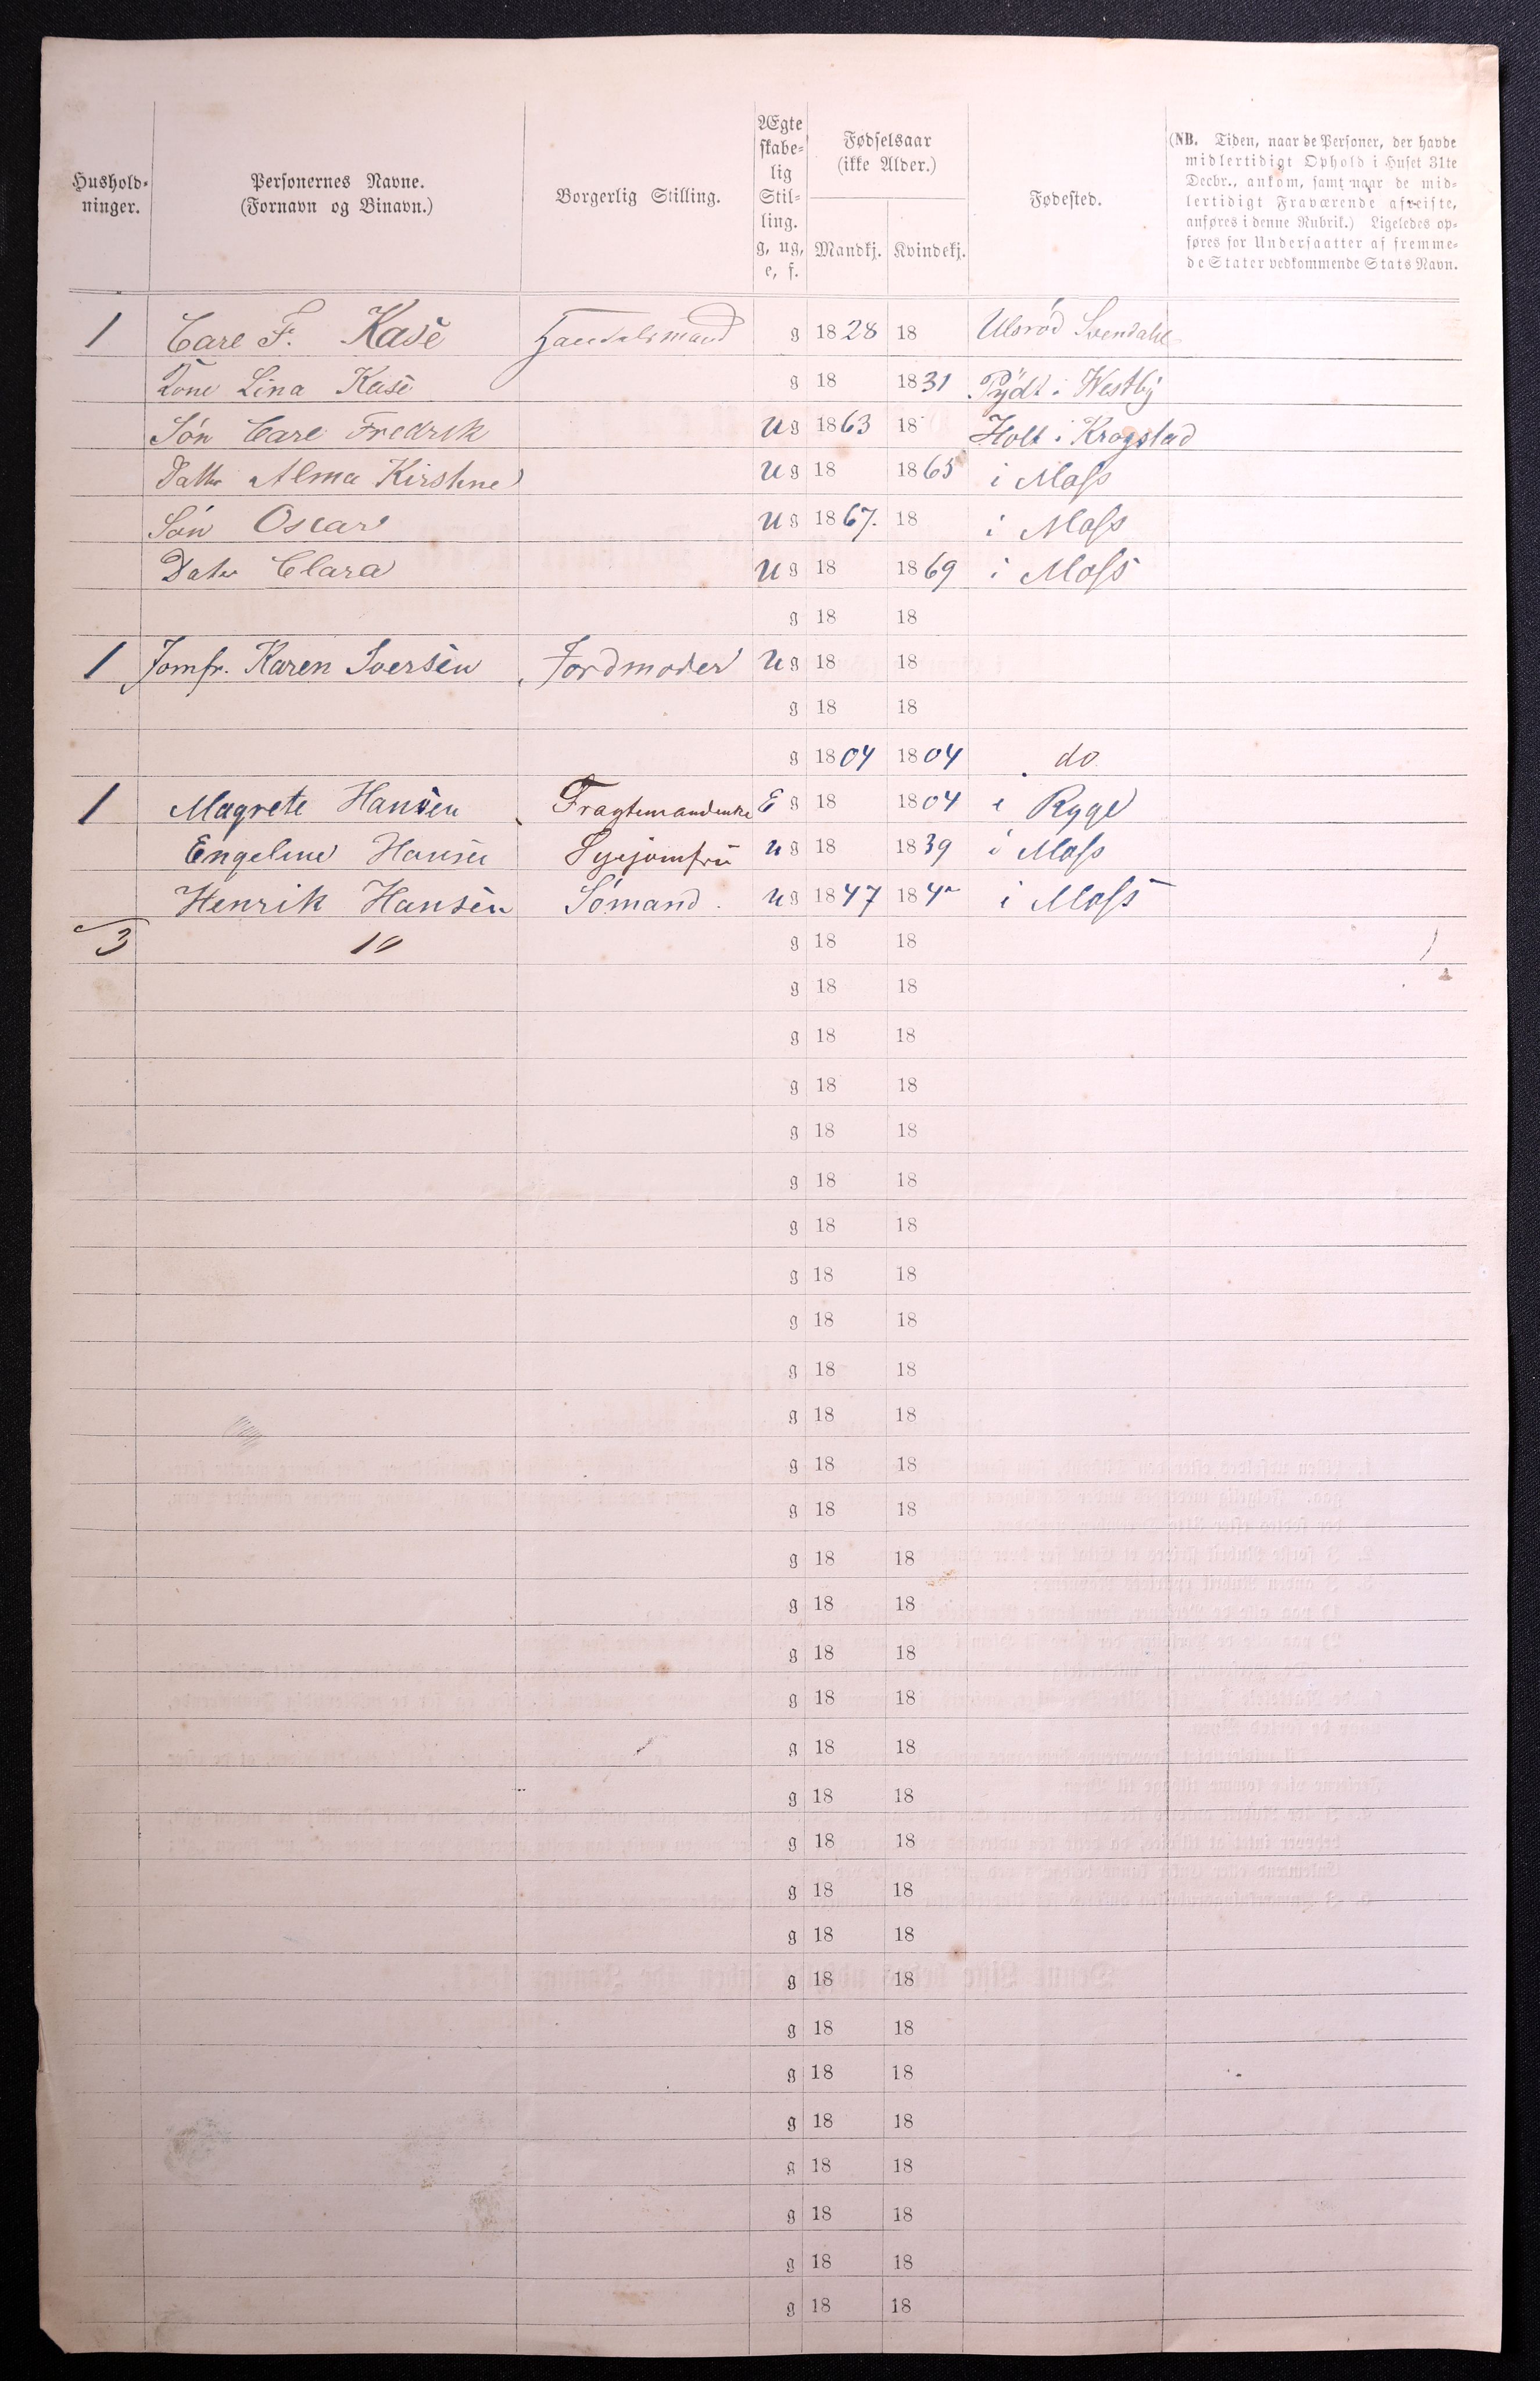 Hushold-
ninger.
Personernes Navne.
(Fornavn og Binavn.)
Borgerlig Stilling.
Ægte
skabe-
lig
Stil-
ling.
g, ug,
e, f.
Fødselsaar
(ikke Alder.)
Mandkj. Kvindekj.
Fødested.
(NB. Tiden, naar de Personer, der havde
midlertidigt Ophold i Huset 31te
Decbr., ankom, samt naar de mid-
lertidigt Fraværende afreiste,
anføres i denne Rubrik.) Ligeledes op-
føres for Undersaatter af fremme-
de Stater vedkommende Stats Navn.
1 Carl F. Kase Handelsmand g 1828 18
Kone Lina Kase g 18 1831 i Westby
Søn Carl Fredrik ug 1863 18 Holt i Kragstad
Datter Alma Kirstine ug 18 1865 i Moss
Søn Oscar ug 1867. 18 i Moss
Dater Clara ug 18 1869 i Moss
g 18 18
1 Jomfr. Karen Iversen Jordmoder ug 18 18
g 18 18
g 1804 1804 do
1 Magrete Hansen Fragtemandenke E g 18 1804 i Ryge
Engeline Hansen Syejomfru ug 18 1839 i Moss
Henrik Hansen Sömand. ug 1847 184 i Moss
3 10 g 18 18
g 18 18
g 18 18
g 18 18
g 18 18
g 18 18
g 18 18
g 18 18
g 18 18
g 18 18
g 18 18
g 18 18
g 18 18
g 18 18
g 18 18
g 18 18
g 18 18
g 18 18
g 18 18
g 18 18
g 18 18
g 18 18
g 18 18
g 18 18
g 18 18
g 18 18
g 18 18
g 18 18
g 18 18
g 18 18